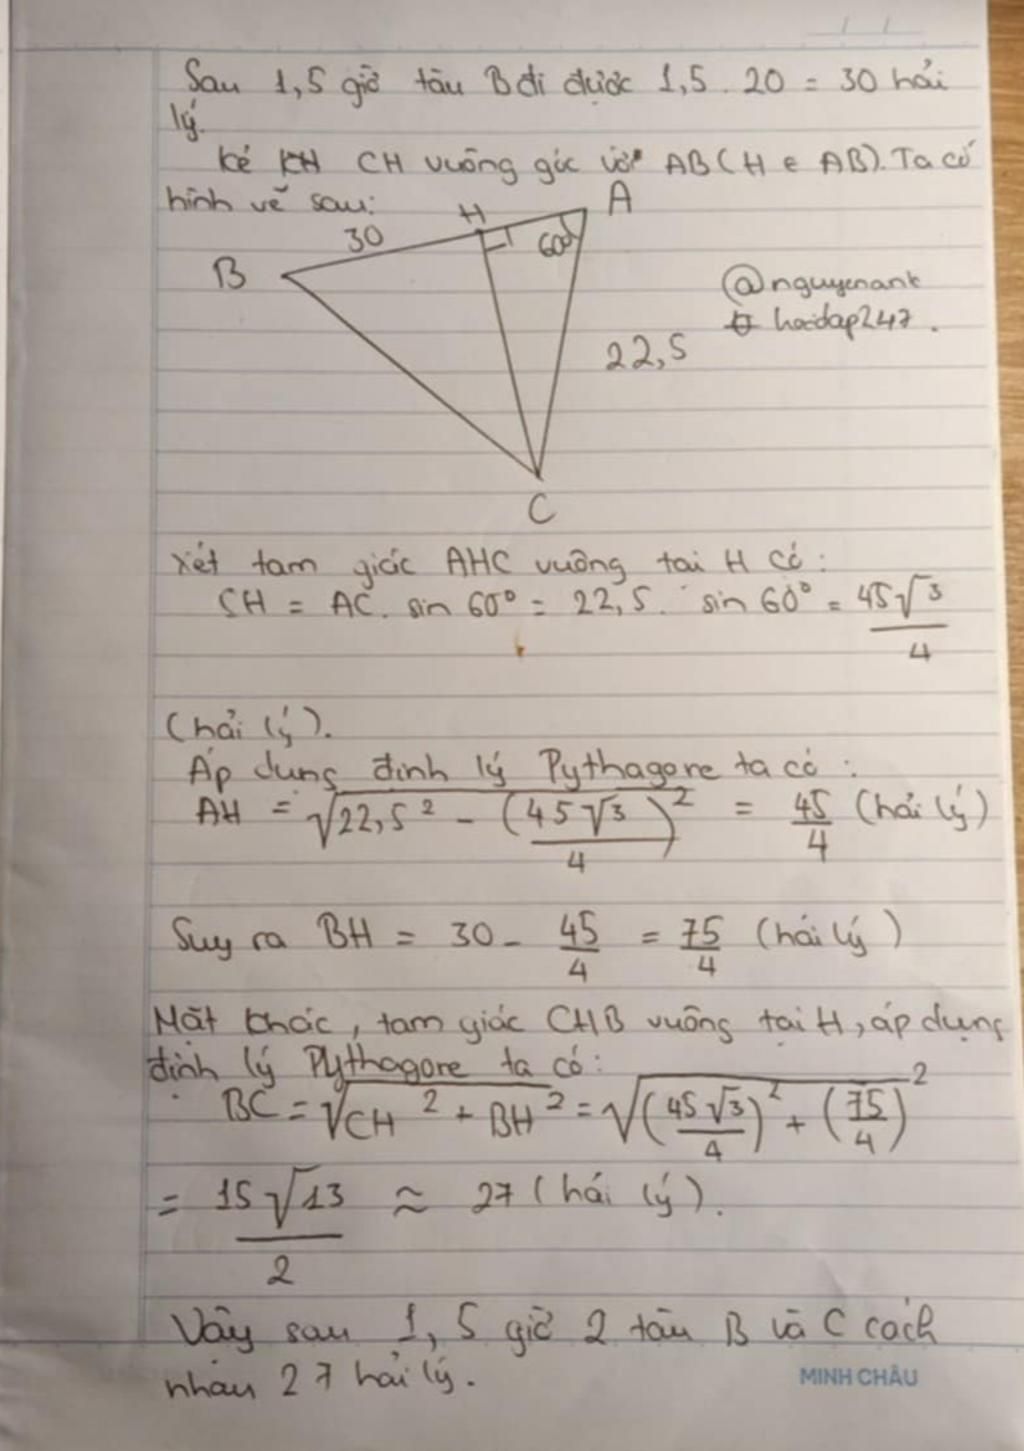 Sau 1,5 giờ tàu B đi được 1,5 . 20 = 30 hải
lý.
Kẻ CH vuông góc với AB (H ∈ AB). Ta có
hình vẽ sau:
H
A
30
60°
B
@nguyenank
hoidap247.
22,5
C
Xét tam giác AHC vuông tại H có:
CH = AC. sin 60° = 22,5. sin 60° = 45√3/4
(hải lý).
Áp dụng định lý Pythagore ta có:
AH = √(22,5² - (45√3/4)²) = 45/4 (hải lý)
Suy ra BH = 30 - 45/4 = 75/4 (hải lý)
Mặt khác, tam giác CHB vuông tại H, áp dụng
định lý Pythagore ta có:
BC = √(CH² + BH²) = √((45√3/4)² + (75/4)²)
= 15√13/2 ≈ 27 (hải lý).
Vậy sau 1,5 giờ 2 tàu B và C cách
nhau 27 hải lý.
MINH CHÂU